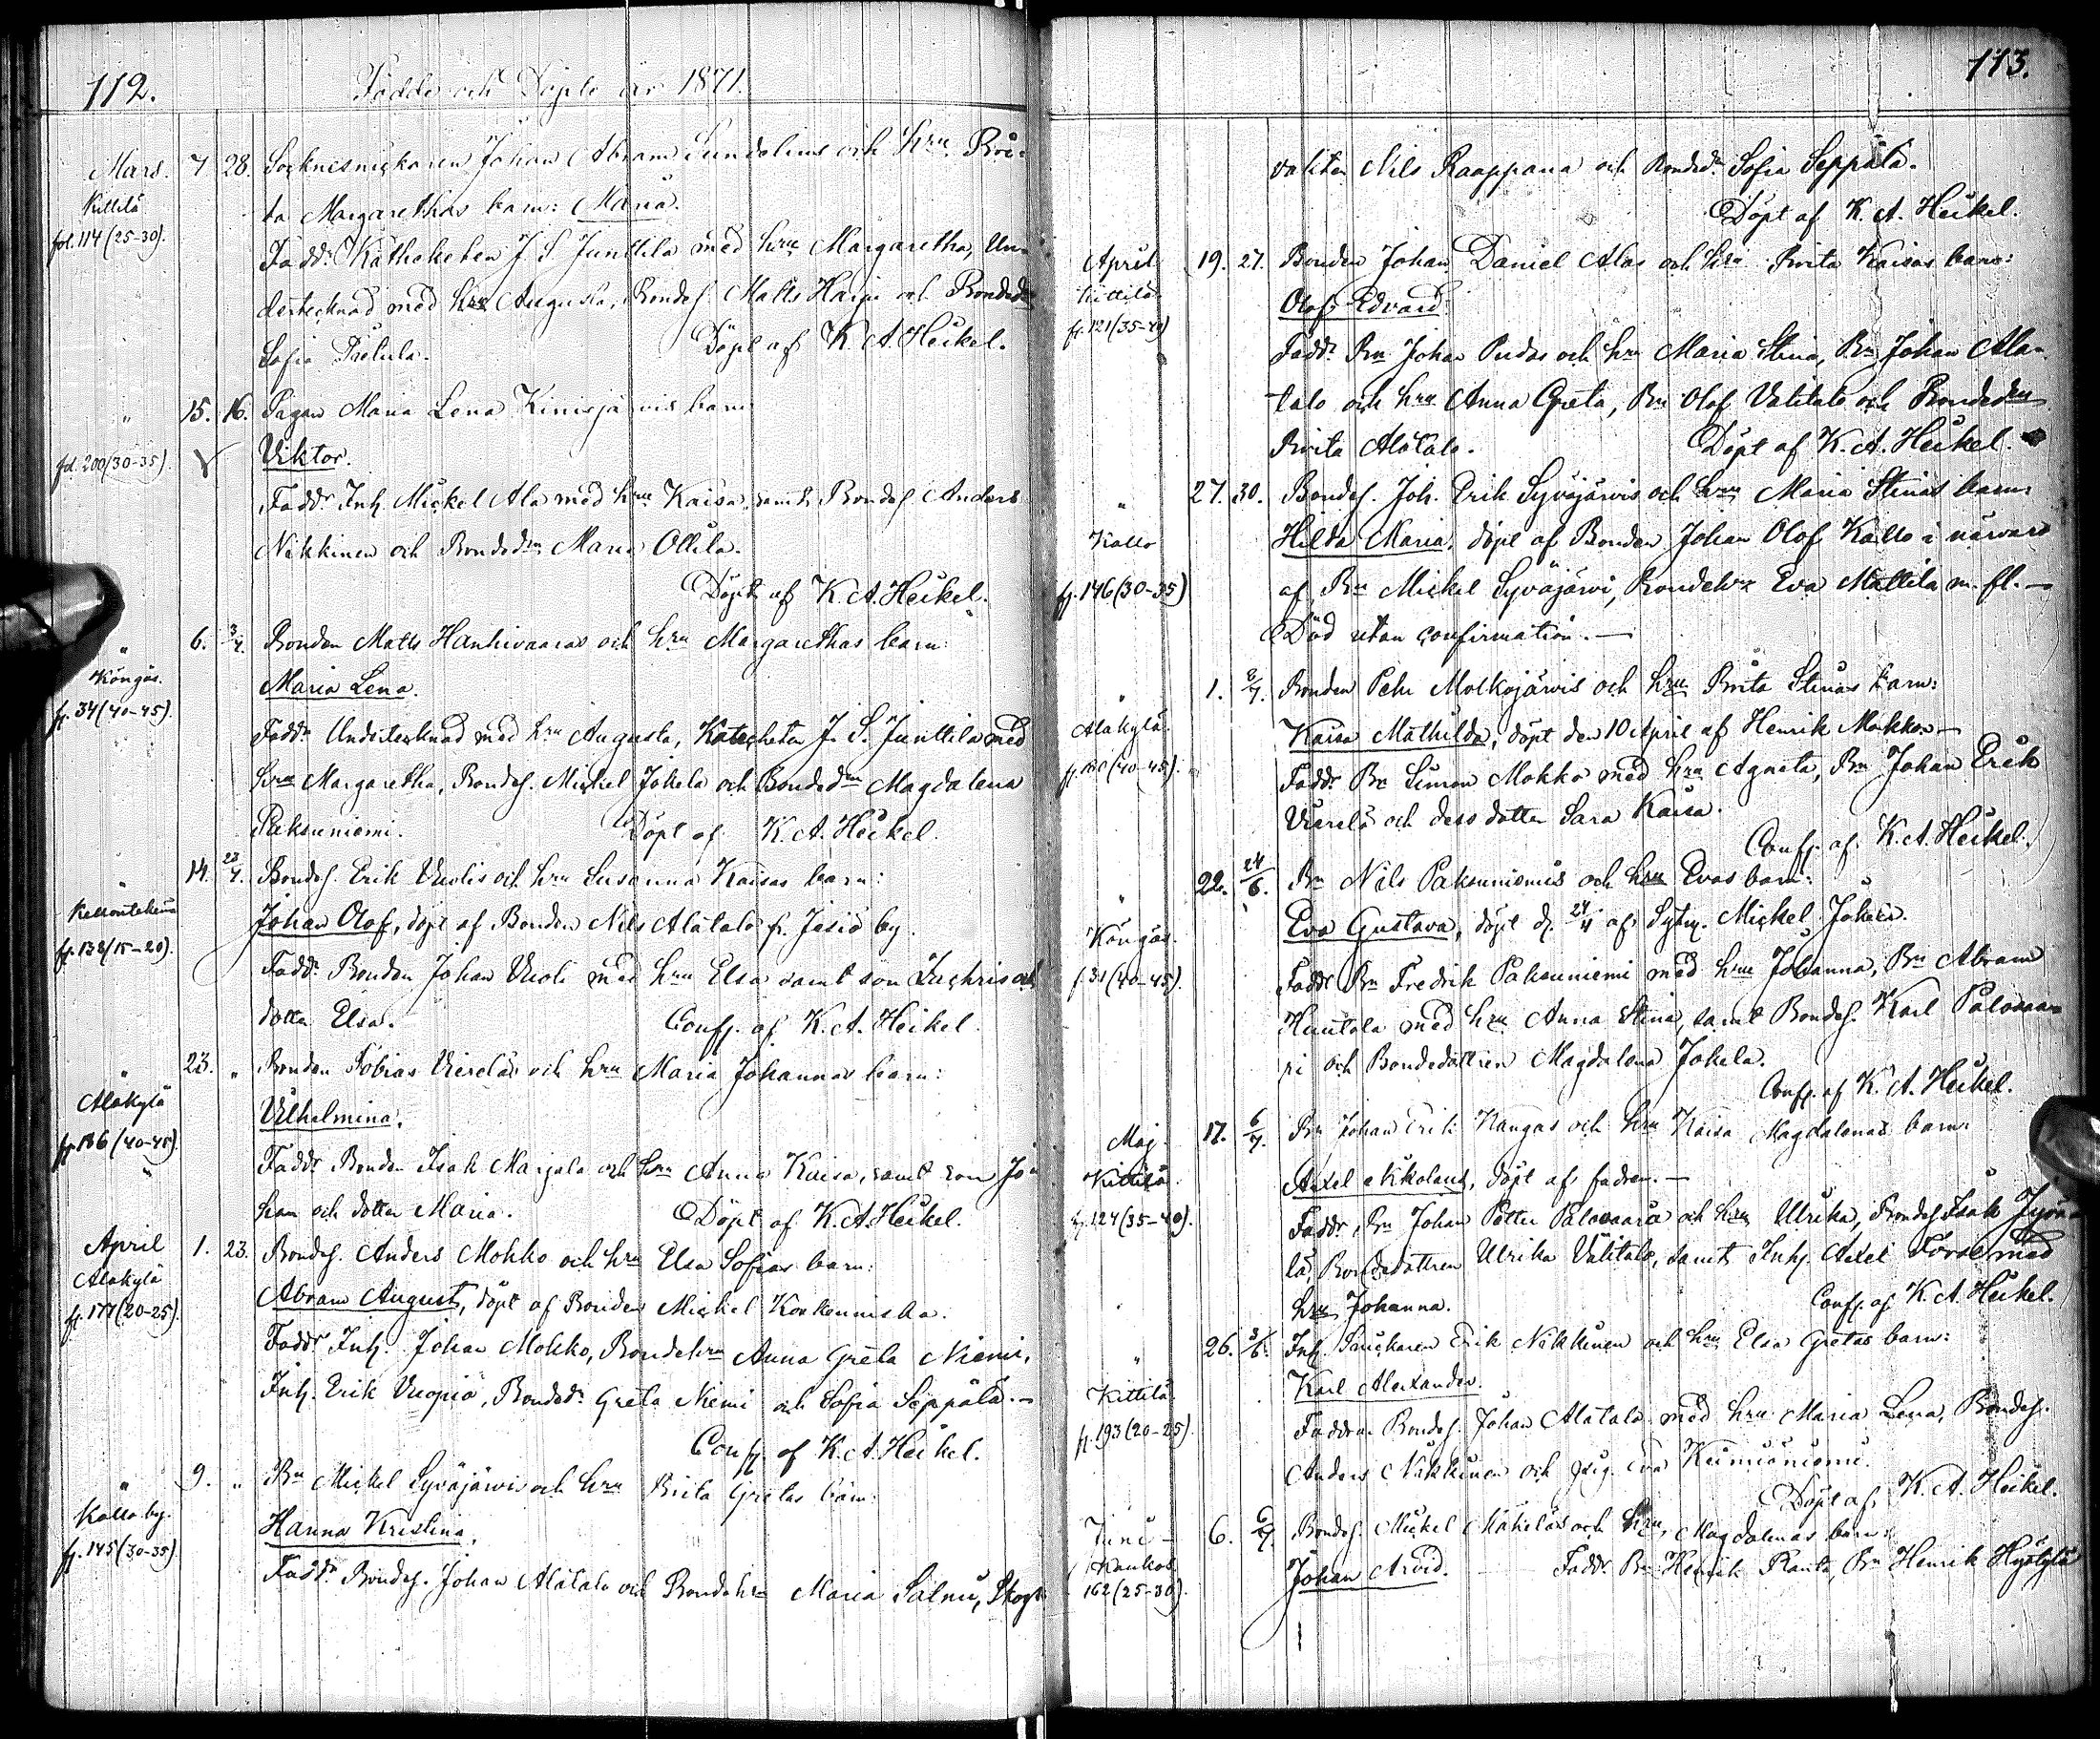 112.
Födde och Döpte år 1871.
Mars. 7 28. Socknesnickaren Johan Abram Sundelins och hru Bri-
Kittilä
ta Margarethas barn: Maria.
fol. 114 (25-30).
Fadd. Katheketen J. S. Junttila med hru Margaretha, Un-
dertecknad med hru Augusta, Bondes. Matts Haipi och Bonded.
Sofia
Döpt af K. A. Heikel.
" 15. 16. Pigan Maria Lena Kinisjärvis barn
fol. 200 (30-35).
Viktor.
Fadd. Inh. Mickel Ala med hru Kaisa, samt Bondes. Anders
Nikkinen och Bonded. Maria Ollila.
Döpt af K. A. Heikel.
" 6. 3/4. Bonden Matts Hanhivaaras och hru Margarethas barn:
Köngäs.
Maria Lena.
f. 34 (40-45).
Fadd. Undertecknad med hru Augusta, Katecheten J. S. Junttila med
hru Margaretha, Bondes. Mickel Jokela och Bonded. Magdalena
Paksuniemi. Döpt af K. A. Heikel.
" 14. 23/4. Bondes. Erik Vuolis och hru Susanna Kaisas barn:
Johan Olof, döpt af Bonden Nils Alatalo fr. Jesiö by.
f. 138 (15-20).
Fadd. Bonden Johan Vuoli med hru Elsa samt son Zachris och
dotter Elsa. Conf. af K. A. Heikel.
" 23. " Bonden Tobias Viereläs och hru Maria Johannas barn:
Alakylä
Vilhelmina.
f. 186 (40-45).
Fadd. Bonden Isak Marjala och hru Anna Kaisa, samt son Jo-
han och dotter Maria. Döpt af K. A. Heikel.
April 1. 23. Bondes. Anders Mokko och hru Elsa Sofias barn:
Alakylä
Abram August, döpt af Bonden Mickel Korkonniska.
f. 177 (20-25).
Fadd. Inh. Johan Mokko, Bondehru Anna Greta Niemi,
Inh. Erik Vuopio, Bonded. Greta Niemi och Sofia Seppälä. —
Conf. af K. A. Heikel.
" 9. " Bn Mickel Syväjärvis och hru Brita Gretas barn:
Kallo by.
Hanna Kristina.
f. 145 (30-35)
Fadd. Bondes. Johan Alatalo och Bondehru Maria Salmi, Skogs-
113.
vakten Nils Raappana och Bonded. Sofia Seppälä.
Döpt af K. A. Heikel.
April 19. 27. Bonden Johan Daniel Alas och hru Brita Kaisas barn:
Kittilä
Olof Edvard.
f. 121 (35-40)
Fadd. Bn Johan Pudas och hru Maria Stina, Bn Johan Ala-
talo och hru Anna Greta, Bn Olof Välitalo och Bonded.
Brita Alatalo. Döpt af K. A. Heikel.
" 27. 30. Bondes. Joh. Erik Syväjärvis och hru Maria Stinas barn:
Kallo
Hilda Maria, döpt af Bonden Johan Olof Kallo i närvaro
f. 146 (30-35)
af Bn Mickel Syväjärvi, Bondehru Eva Mattila m. fl. —
Död utan confirmation. —
" 1. 2/7. Bonden Pehr Molkojärvis och hru Brita Stinas barn:
Alakylä.
Kaisa Mathilda, döpt den 10 April af Henrik Mokko. —
Fadd. Bn Simon Mokko med hru Agneta, Bn Johan Erik
Vierelä och dess dotter Sara Kaisa.
Conf. af K. A. Heikel.
" 22. 24/6. Bn Nils Paksuniemis och hru Evas barn:
Köngäs.
Eva Gustava, döpt d. 24/4 af Sytn. Mickel Jokela.
f. 31 (40-45).
Fadd. Bn Fredrik Paksuniemi med hru Johanna, Bn Abram
Huutola med hru Anna Stina, samt Bondes. Karl Palovaa-
ri och Bondedottren Magdalena Jokela.
Conf. af K. A. Heikel.
Maj. 17. 6/7. Bn Johan Erik Kangas och hru Kaisa Magdalenas barn:
Kittilä
Axel Nikolaus, döpt af fadren. —
f. 124 (35-40).
Fadd. Bn Johan Petter Palovaara och hru Ulrika, Bondes. Isak
lä, Bondedottren Ulrika Välitalo, samt Inh. Axel Forss med
hru Johanna. Conf. af K. A. Heikel.
" 26. 3/6. Inh. Snickaren Erik Nikkinen och hru Elsa Gretas barn:
Kittilä
Karl Alexander.
f. 193 (20-25).
Faddra. Bondes. Johan Alatalo med hru Maria Lena, Bondes.
Anders Nikkinen och pig. Eva
Döpt af K. A. Heikel.
Juni 6. 6/7. Bondes. Mickel Mäkeläs och hru Magdalenas barn:
Kaukos.
Johan Arvid. — Fadd. Bn Henrik Ranta, Bn Henrik
162 (25-30).